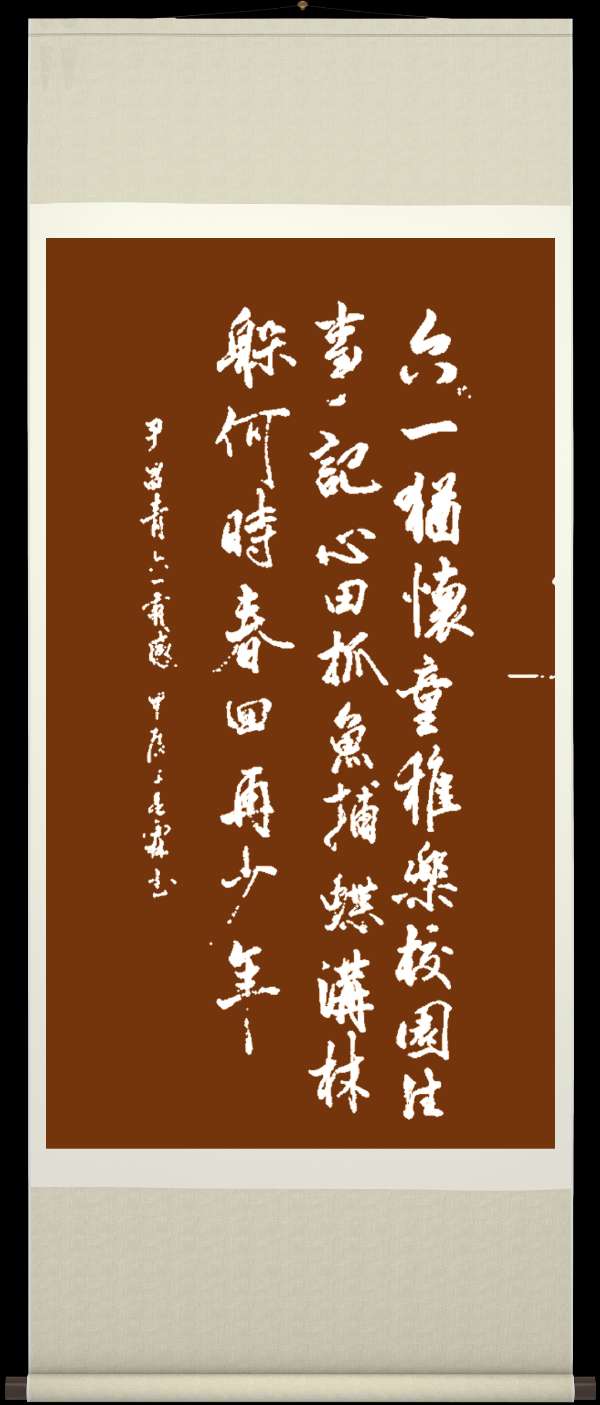 六一猶懷童稚樂校園往
事記心田抓魚捕蝶溝林
躲何時春回再少年
尹昌青六一感 甲辰霖书